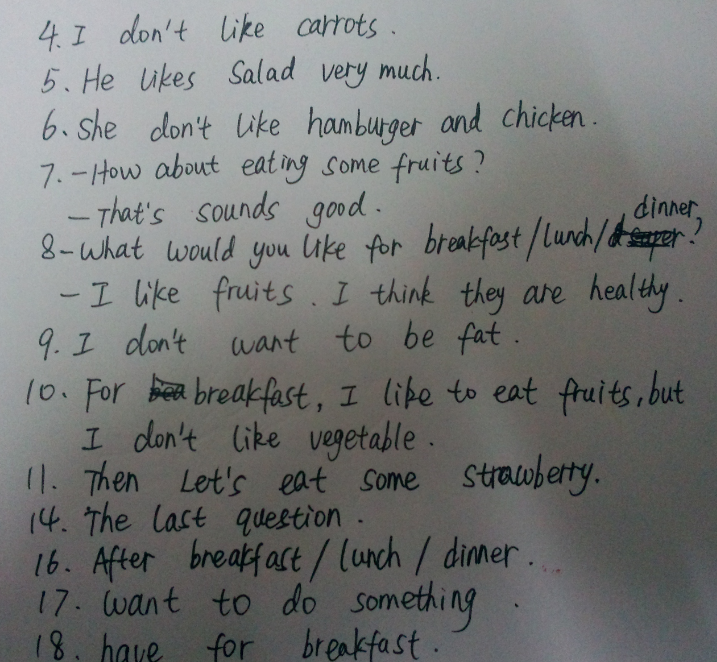 4. I don't like carrots.
5. He likes Salad very much.
6. She don't like hamburger and chicken.
7. - How about eating some fruits?
- That's sounds good.
dinner
8 - What would you like for breakfast / lunch / ?
- I like fruits. I think they are healthy.
9. I don't want to be fat.
10. For breakfast, I like to eat fruits, but
I don't like vegetable.
11. Then Let's eat some strawberry.
14. The last question.
16. After breakfast / lunch / dinner...
17. want to do something.
18. have for breakfast.